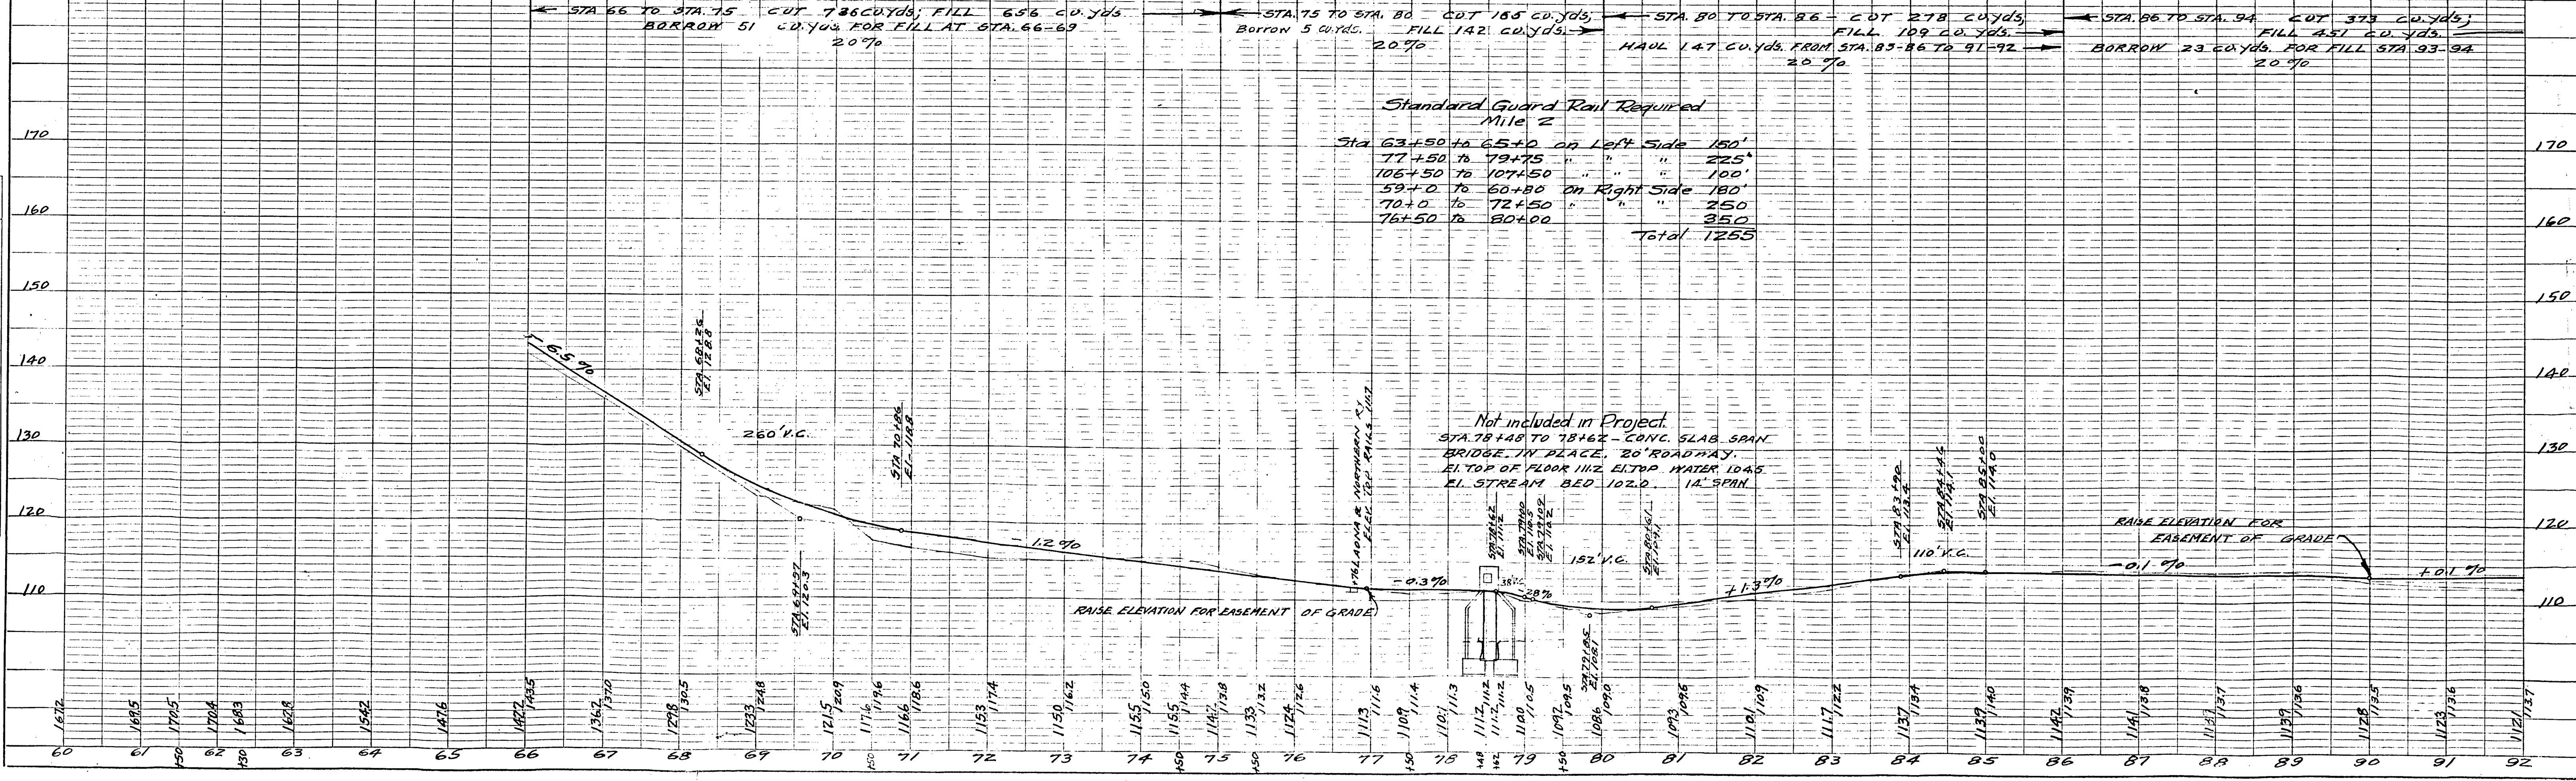 STA 66 TO STA. 75 CUT 736 CU.Yds; FILL 656 CU.yds
BORROW 51 CU.Yds FOR FILL AT STA. 66-69
20%
STA. 75 TO STA. 80 CUT 165 CU.Yds,
Borrow 5 CU.Yds. FILL 142 CU.Yds.
20%
STA. 80 TO STA. 86 - CUT 278 CU.Yds,
FILL 109 CU.Yds.
HAUL 147 CU.Yds. FROM STA. 85-86 TO 91-92
20%
STA. 86 TO STA. 94 CUT 373 CU.Yds;
FILL 451 CU.Yds.
BORROW 23 CU.Yds. FOR FILL STA 93-94
20%
Standard Guard Rail Required
Mile 2
Sta 63+50 to 65+0 on Left Side 150'
77+50 to 79+75 " " " 225'
106+50 to 107+50 " " " 100'
59+0 to 60+80 on Right Side 180'
70+0 to 72+50 " " " 250
76+50 to 80+00 350
Total 1255
170
160
150
140
130
120
110
170
160
150
140
130
120
110
-6.5%
STA. 68+26
El. 128.8
260' V.C.
STA 70+86
El-118.8
STA 69+57
El. 120.3
-1.2%
+76 LAONA & NORTHERN RY
ELEV. TOP RAILS 111.7
RAISE ELEVATION FOR EASEMENT OF GRADE
-0.3%
Not included in Project.
STA 78+48 TO 78+62 - CONC. SLAB SPAN
BRIDGE. IN PLACE. 20' ROADWAY.
El. TOP OF FLOOR 111.2 El. TOP WATER 104.5
El. STREAM BED 102.0. 14' SPAN
STA 78+62
El. 111.2
STA. 79+0
El. 110.5
STA 79+09
El. 110.2
-2.8%
152' V.C.
STA 79+85
El. 108.1
STA 80+61
El. 109.1
+1.3%
STA 83+90
El. 113.4
110' V.C.
STA 84+46
El. 114.1
STA 85+00
El. 114.0
-0.1%
RAISE ELEVATION FOR
EASEMENT OF GRADE
+0.1%
167.2 169.5 170.5 170.4 168.3 162.8 154.2 147.6 142.2 136.2 129.8 123.3 121.5 117.6 116.6 115.3 115.0 115.5 115.5 114.7 113.3 112.4 111.3 110.9 110.7 111.2 111.2 110.0 109.2 108.6 109.3 110.1 111.7 113.7 113.9 114.2 114.1 113.9 112.8 112.3 112.1
143.5 137.0 130.5 124.8 120.9 119.6 118.6 117.4 116.2 115.0 114.4 113.8 113.2 112.6 111.6 111.4 111.3 111.2 111.2 110.5 109.5 109.0 109.6 110.9 112.2 113.4 114.0 113.9 113.8 113.7 113.6 113.5 113.6 113.7
60 61 +50 62 +30 63 64 65 66 67 68 69 70 +50 71 72 73 74 +50 75 +50 76 77 +50 78 +48 +62 79 +50 80 81 82 83 84 85 86 87 88 89 90 91 92